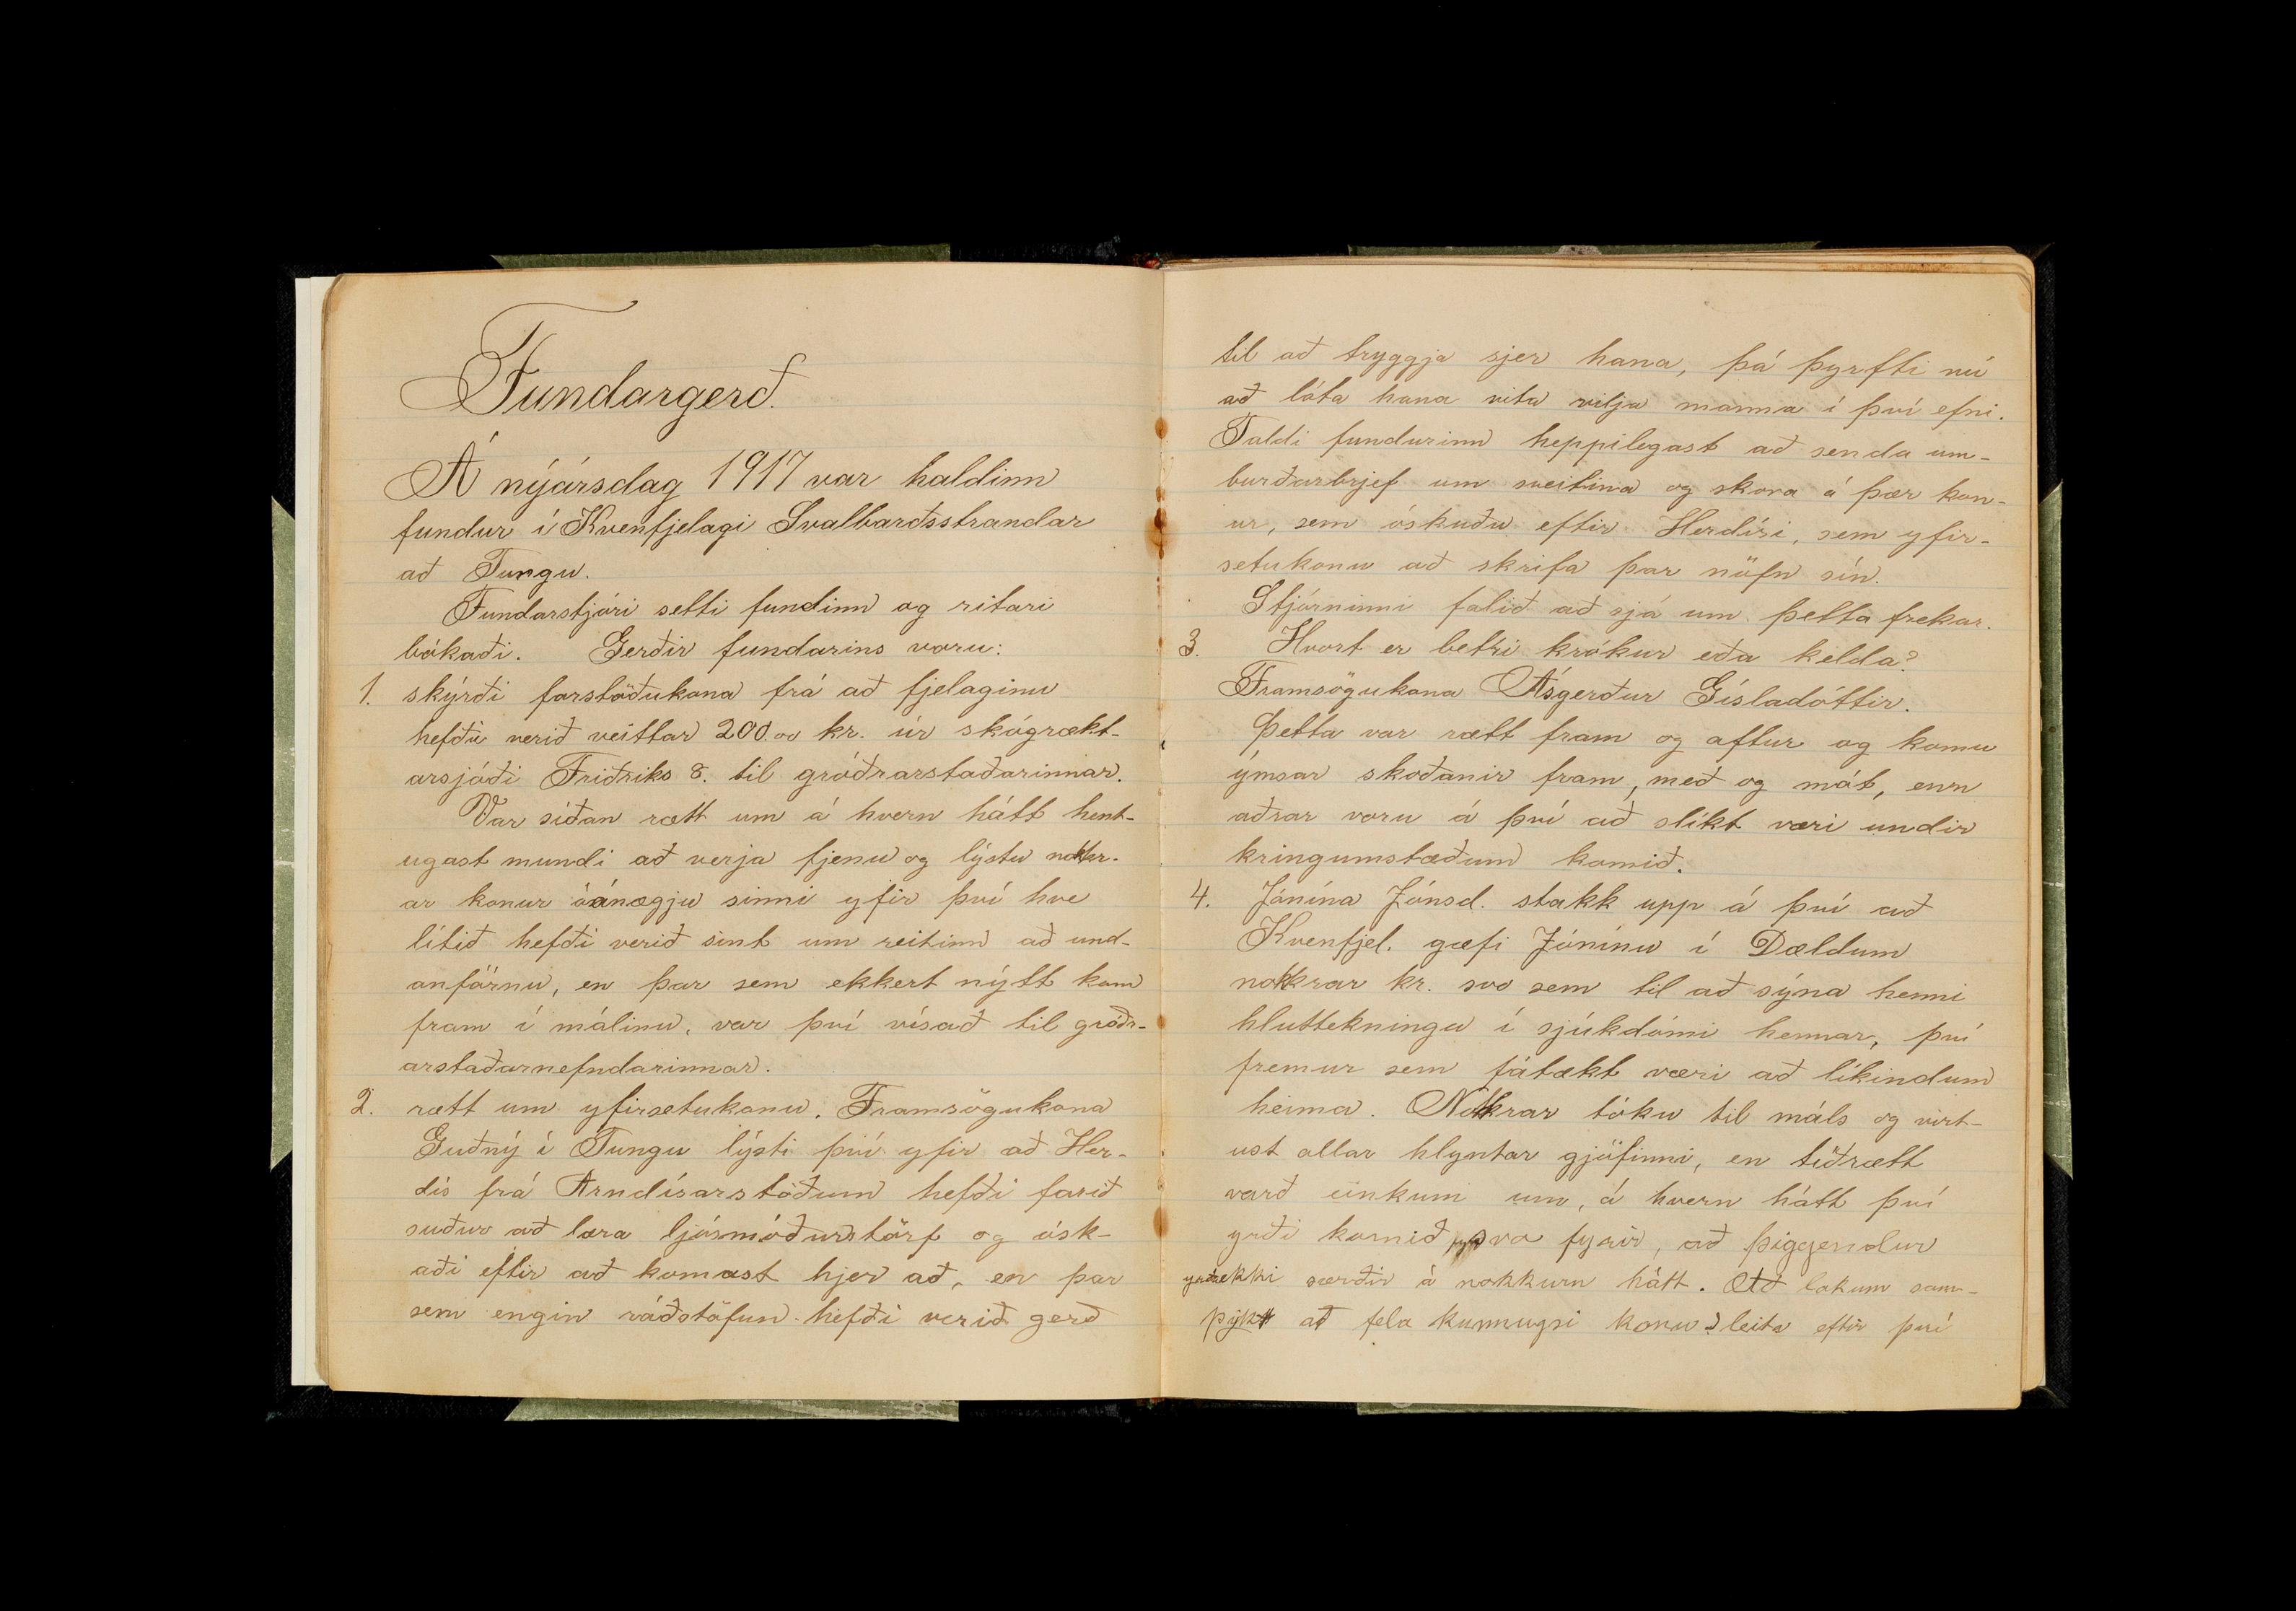 Fundargerð.
Á nýársdag 1917 var haldinn
fundur í Kvenfjelagi Svalbarðsstrandar
að Tungu.
Fundarstjóri setti fundinn og ritari
bókaði. Gerðir fundarins voru:
1. skýrði forstöðukona frá að fjelaginu
hefðu verið veittar 200.00 kr. úr skógrækt-
arsjóði Friðriks 8. til gróðrarstaðarinnar.
Var síðan rætt um á hvern hátt hent-
ugast mundi að verja fjenu og lýstu nokkr-
ar konur óánægju sinni yfir því hve
lítið hefði verið sint um reitinn að und-
anförnu, en þar sem ekkert nýtt kom
fram í málinu, var því vísað til gróðr-
arstaðarnefndarinnar.
2. rætt um yfirsetukonu. Framsögukona
Guðný í Tungu lýsti því yfir að Her-
dís frá Arndísarstöðum hefði farið
suður að læra ljósmóðurstörf og ósk-
aði eftir að komast hjer að, en þar
sem engin ráðstöfun hefði verið gerð
til að tryggja sjer hana, þá þyrfti nú
að láta hana vita vilja manna í því efni.
Taldi fundurinn heppilegast að senda um-
burðarbrjef um sveitina og skora á þær kon-
ur, sem óskuðu eftir Herdísi, sem yfir-
setukonu að skrifa þar nöfn sín.
Stjórninni falið að sjá um þetta frekar.
3. Hvort er betri krókur eða kelda?
Framsögukona Ásgerður Gísladóttir.
Þetta var rætt fram og aftur og komu
ýmsar skoðanir fram, með og mót, enn
aðrar voru á því að slíkt væri undir
kringumstæðum komið.
4. Jónína Jónsd. stakk upp á því að
Kvenfjel. gæfi Jónínu í Dældum
nokkrar kr. svo sem til að sýna henni
hluttekningu í sjúkdómi hennar, því
fremur sem fátækt væri að líkindum
heima. Nokkrar tóku til máls og virt-
ust allar hlyntar gjöfinni, en tíðrætt
varð einkum um, á hvern hátt því
yrði komið svo fyrir, að þiggendur
yrðu ekki særðir á nokkurn hátt. Að lokum sam-
þykt að fela kunnugri konu leita eftir því